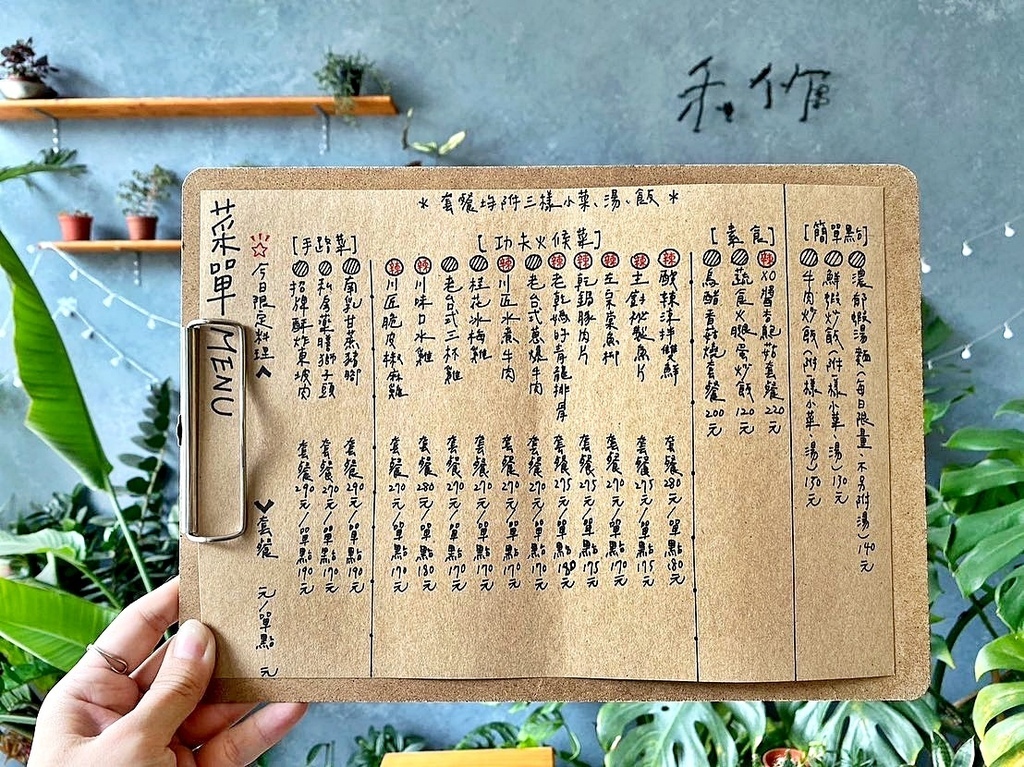 菜單 MENU
* 套餐均附三樣小菜、湯、飯 *
今日限定料理
套餐 元/單點 元
[手路菜]
招牌酥炸東坡肉 套餐290元/單點190元
私房菜膽獅子頭 套餐270元/單點170元
南乳甘蔗豬腳 套餐290元/單點190元
[功夫火候菜]
辣 川匠脆皮椒麻雞 套餐270元/單點170元
辣 川味口水雞 套餐280元/單點180元
老台式三杯雞 套餐270元/單點170元
桂花冰梅雞 套餐270元/單點170元
辣 川匠水煮牛肉 套餐270元/單點170元
老台式蔥爆牛肉 套餐270元/單點170元
辣 老乾媽時蔬龍排骨 套餐275元/單點180元
辣 乾鍋豚肉片 套餐275元/單點175元
辣 左宗棠魚柳 套餐270元/單點170元
辣 生斁椒製魚片 套餐275元/單點175元
辣 酸辣涼拌雙鮮 套餐280元/單點180元
[素食]
烏醋香菇燒套餐 200元
蔬食火腿蛋炒飯 120元
辣 XO醬杏鮑菇套餐 220元
[簡單點]
牛肉炒飯(附一樣小菜、湯)130元
鮮蝦炒飯(附一樣小菜、湯)130元
濃郁蝦湯麵(每日限量、不另附湯)140元